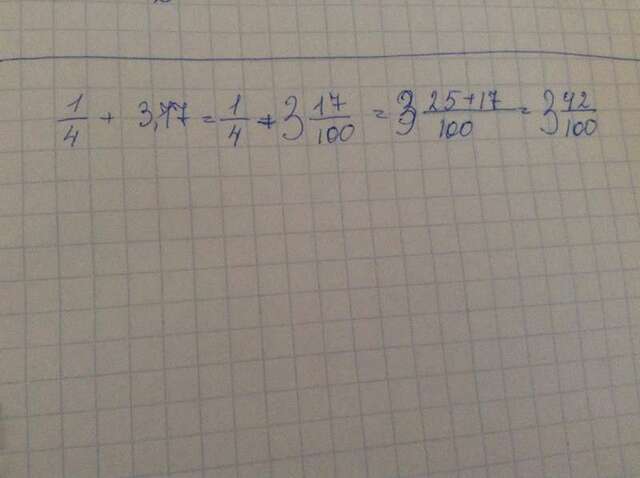 1/4 + 3,17 = 1/4 + 3 17/100 = 3 25+17/100 = 3 42/100